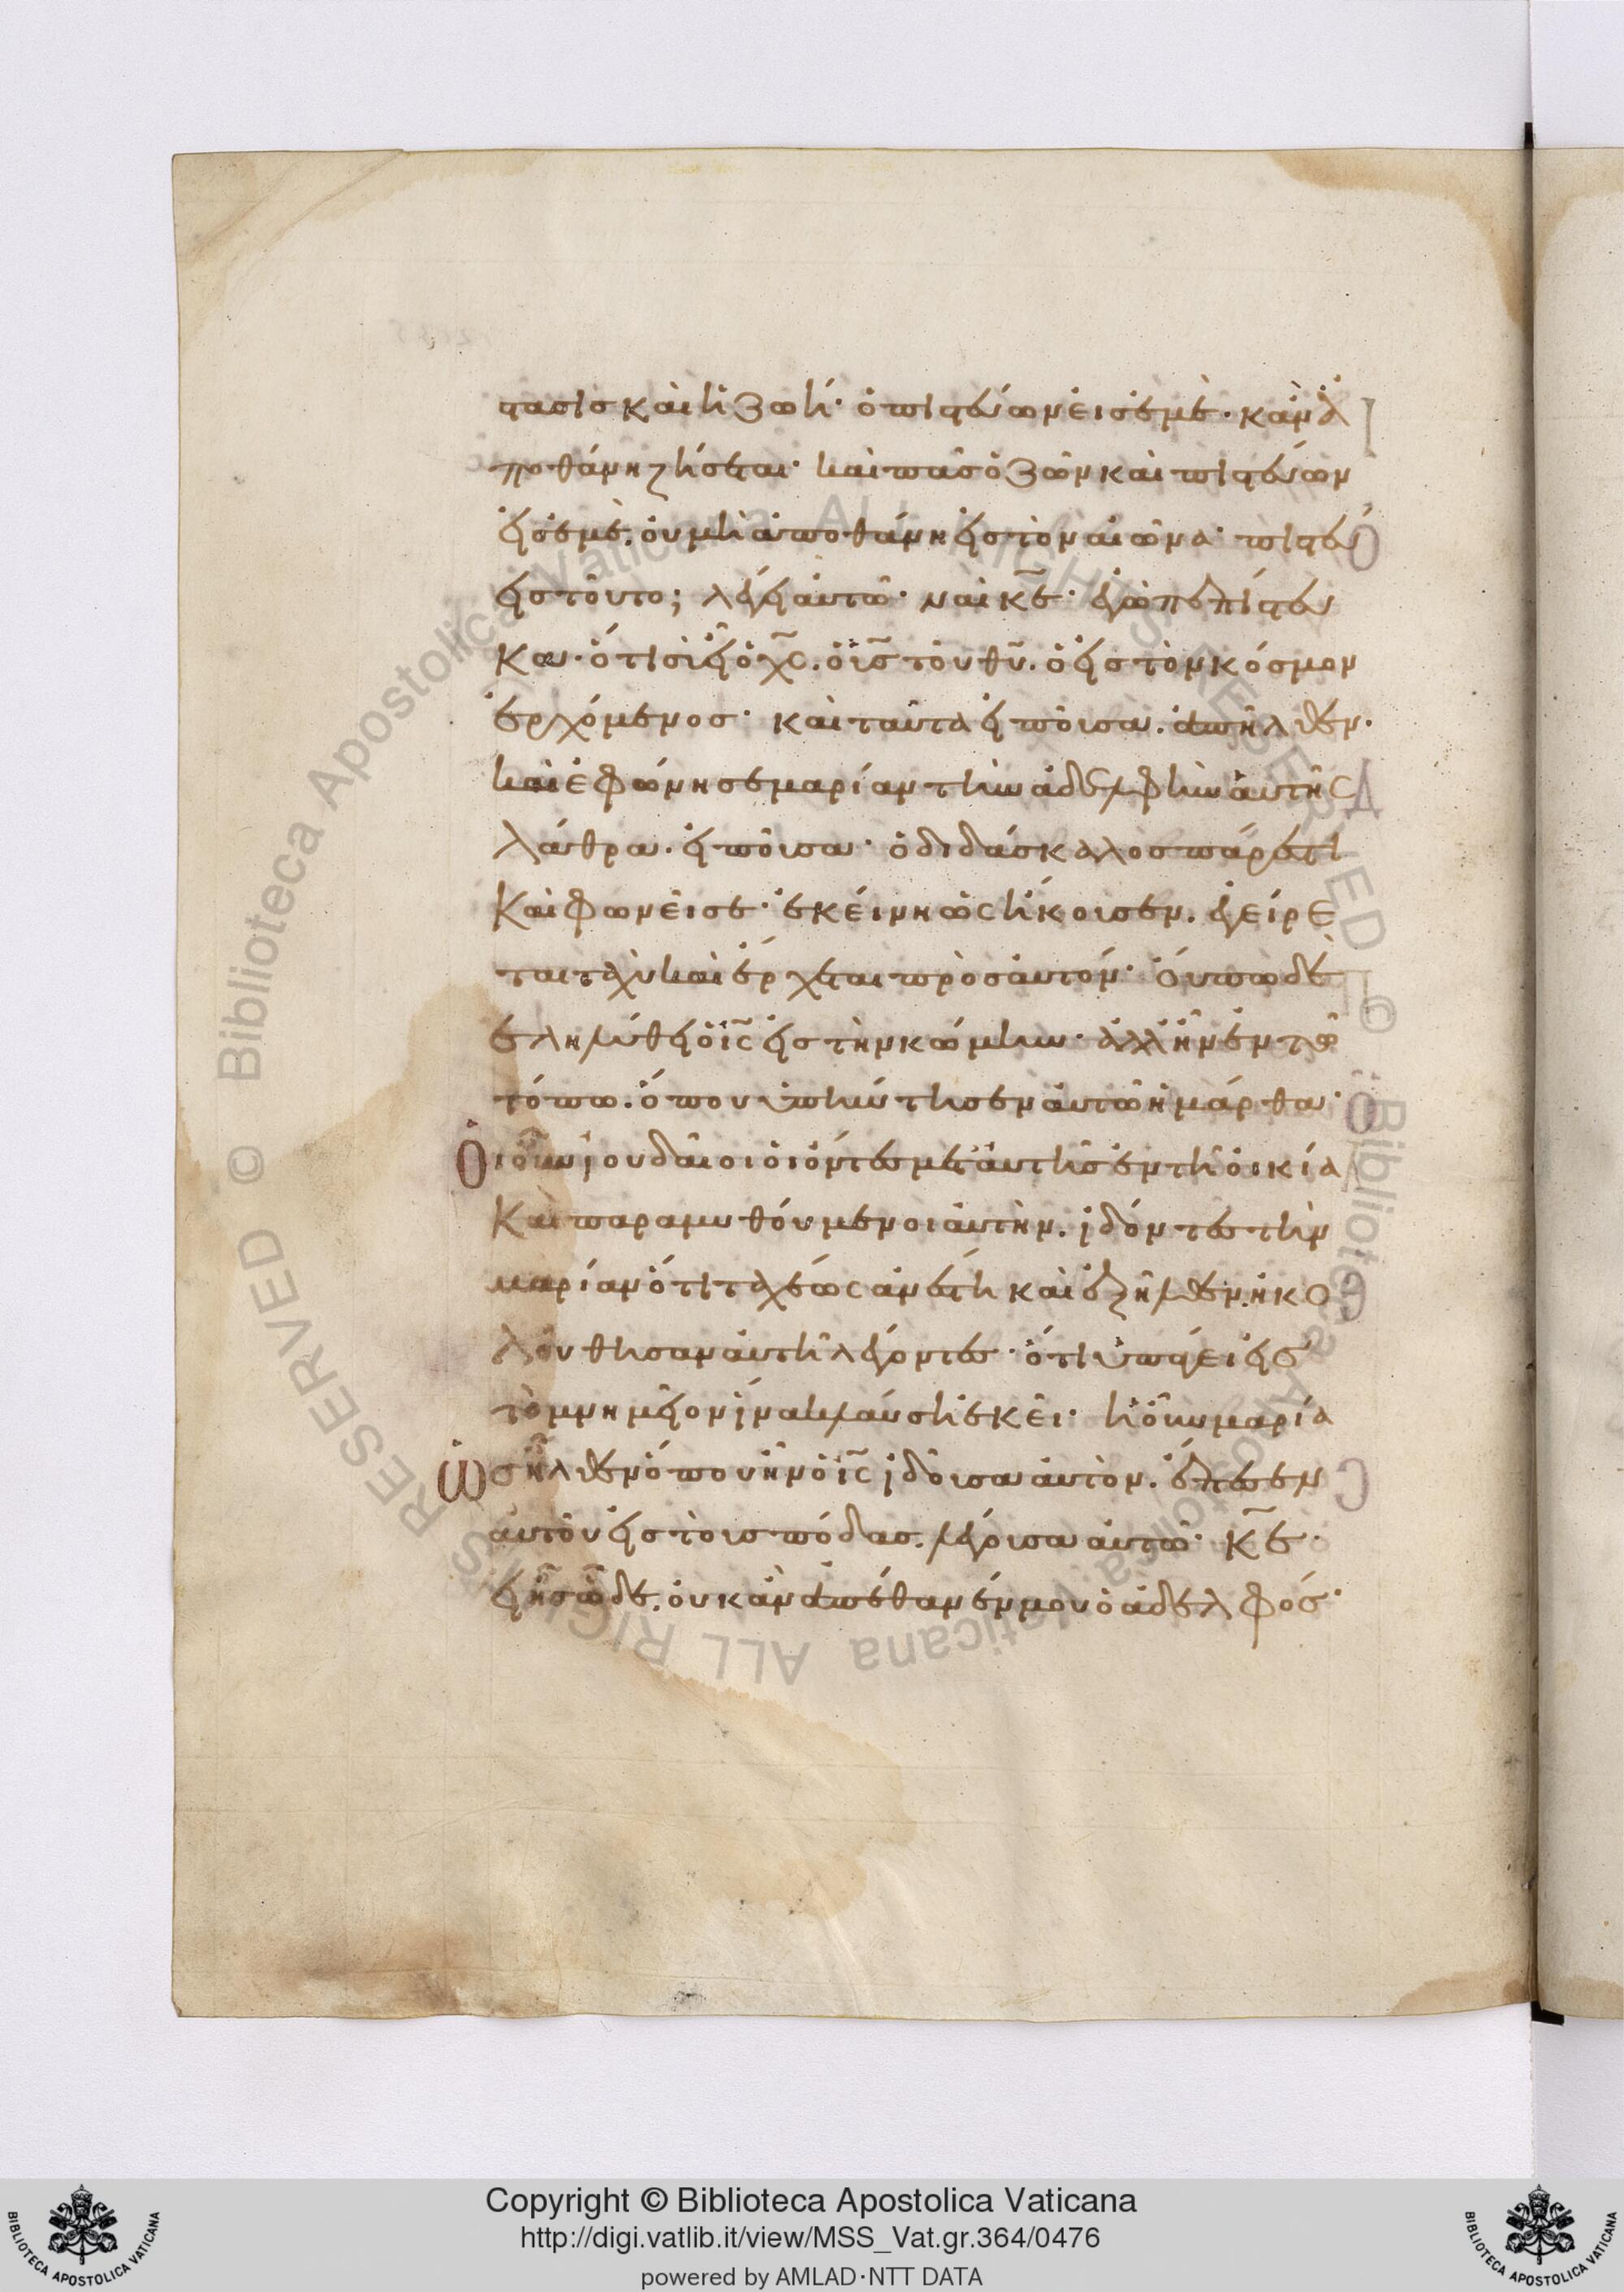 στασις καὶ ἡ ζωή· ὁ πιστεύων εἰς ἐμὲ· κἂν ἀ
ποθάνη ζήσεται· καὶ πᾶς ὁ ζῶν καὶ πιστεύων
εἰς ἐμὲ, οὐ μὴ ἀποθάνη εἰς τὸν αἰῶνα· πιστεύ
εις τοῦτο; λέγει αὐτῶ· ναὶ κ̅ε̅· ἐγὼ πεπίστευ
κα· ὅτι σὺ εἶ ὁ χ̅ς̅. ὁ υ̅ς̅ τοῦ θ̅υ̅. ὁ εἰς τὸν κόσμον
ἐρχόμενος· καὶ ταῦτα εἰποῦσα. ἀπῆλθεν.
καὶ ἐφώνησε μαρίαν τὴν ἀδελφὴν αὐτῆς
λάθρα. εἰποῦσα· ὁ διδάσκαλος πάρεστι
καὶ φωνεῖ σε· ἐκείνη ὡς ἤκουσεν. ἐγείρε
ται ταχὺ καὶ ἔρχεται πρὸς αὐτόν· οὔπω δὲ
ἐληλύθει ὁ ι̅ς̅ εἰς τὴν κώμην· ἀλλ' ἦν ἐν τῶ
τόπω. ὅπου ὑπήντησεν αὐτῶ ἡ μάρθα·
Οἱ οὖν ἰουδαῖοι οἱ ὄντες μετ' αὐτῆς ἐν τῆ οἰκία
καὶ παραμυθούμενοι αὐτὴν. ἰδόντες τὴν
μαρίαν ὅτι ταχέως ἀνέστη καὶ ἐξῆλθεν. ἠκο
λούθησαν αὐτῆ λέγοντες· ὅτι ὑπάγει εἰς
τὸ μνημεῖον ἵνα κλαύση ἐκεῖ· ἡ οὖν μαρία
Ὡς ἦλθεν ὅπου ἦν ὁ ι̅ς̅ ἰδοῦσα αὐτὸν. ἔπεσεν
αὐτοῦ εἰς τοὺς πόδας. λέγουσα αὐτῶ· κ̅ε̅·
εἰ ἦς ὧδε. οὐκ ἂν ἀπέθανέν μου ὁ ἀδελφός·
© Biblioteca Apostolica Vaticana ALL RIGHTS RESERVED © Biblioteca Apostolica Vaticana ALL RIGHTS RESERVED
Copyright © Biblioteca Apostolica Vaticana
http://digi.vatlib.it/view/MSS_Vat.gr.364/0476
powered by AMLAD·NTT DATA
BIBLIOTECA APOSTOLICA VATICANA
BIBLIOTECA APOSTOLICA VATICANA